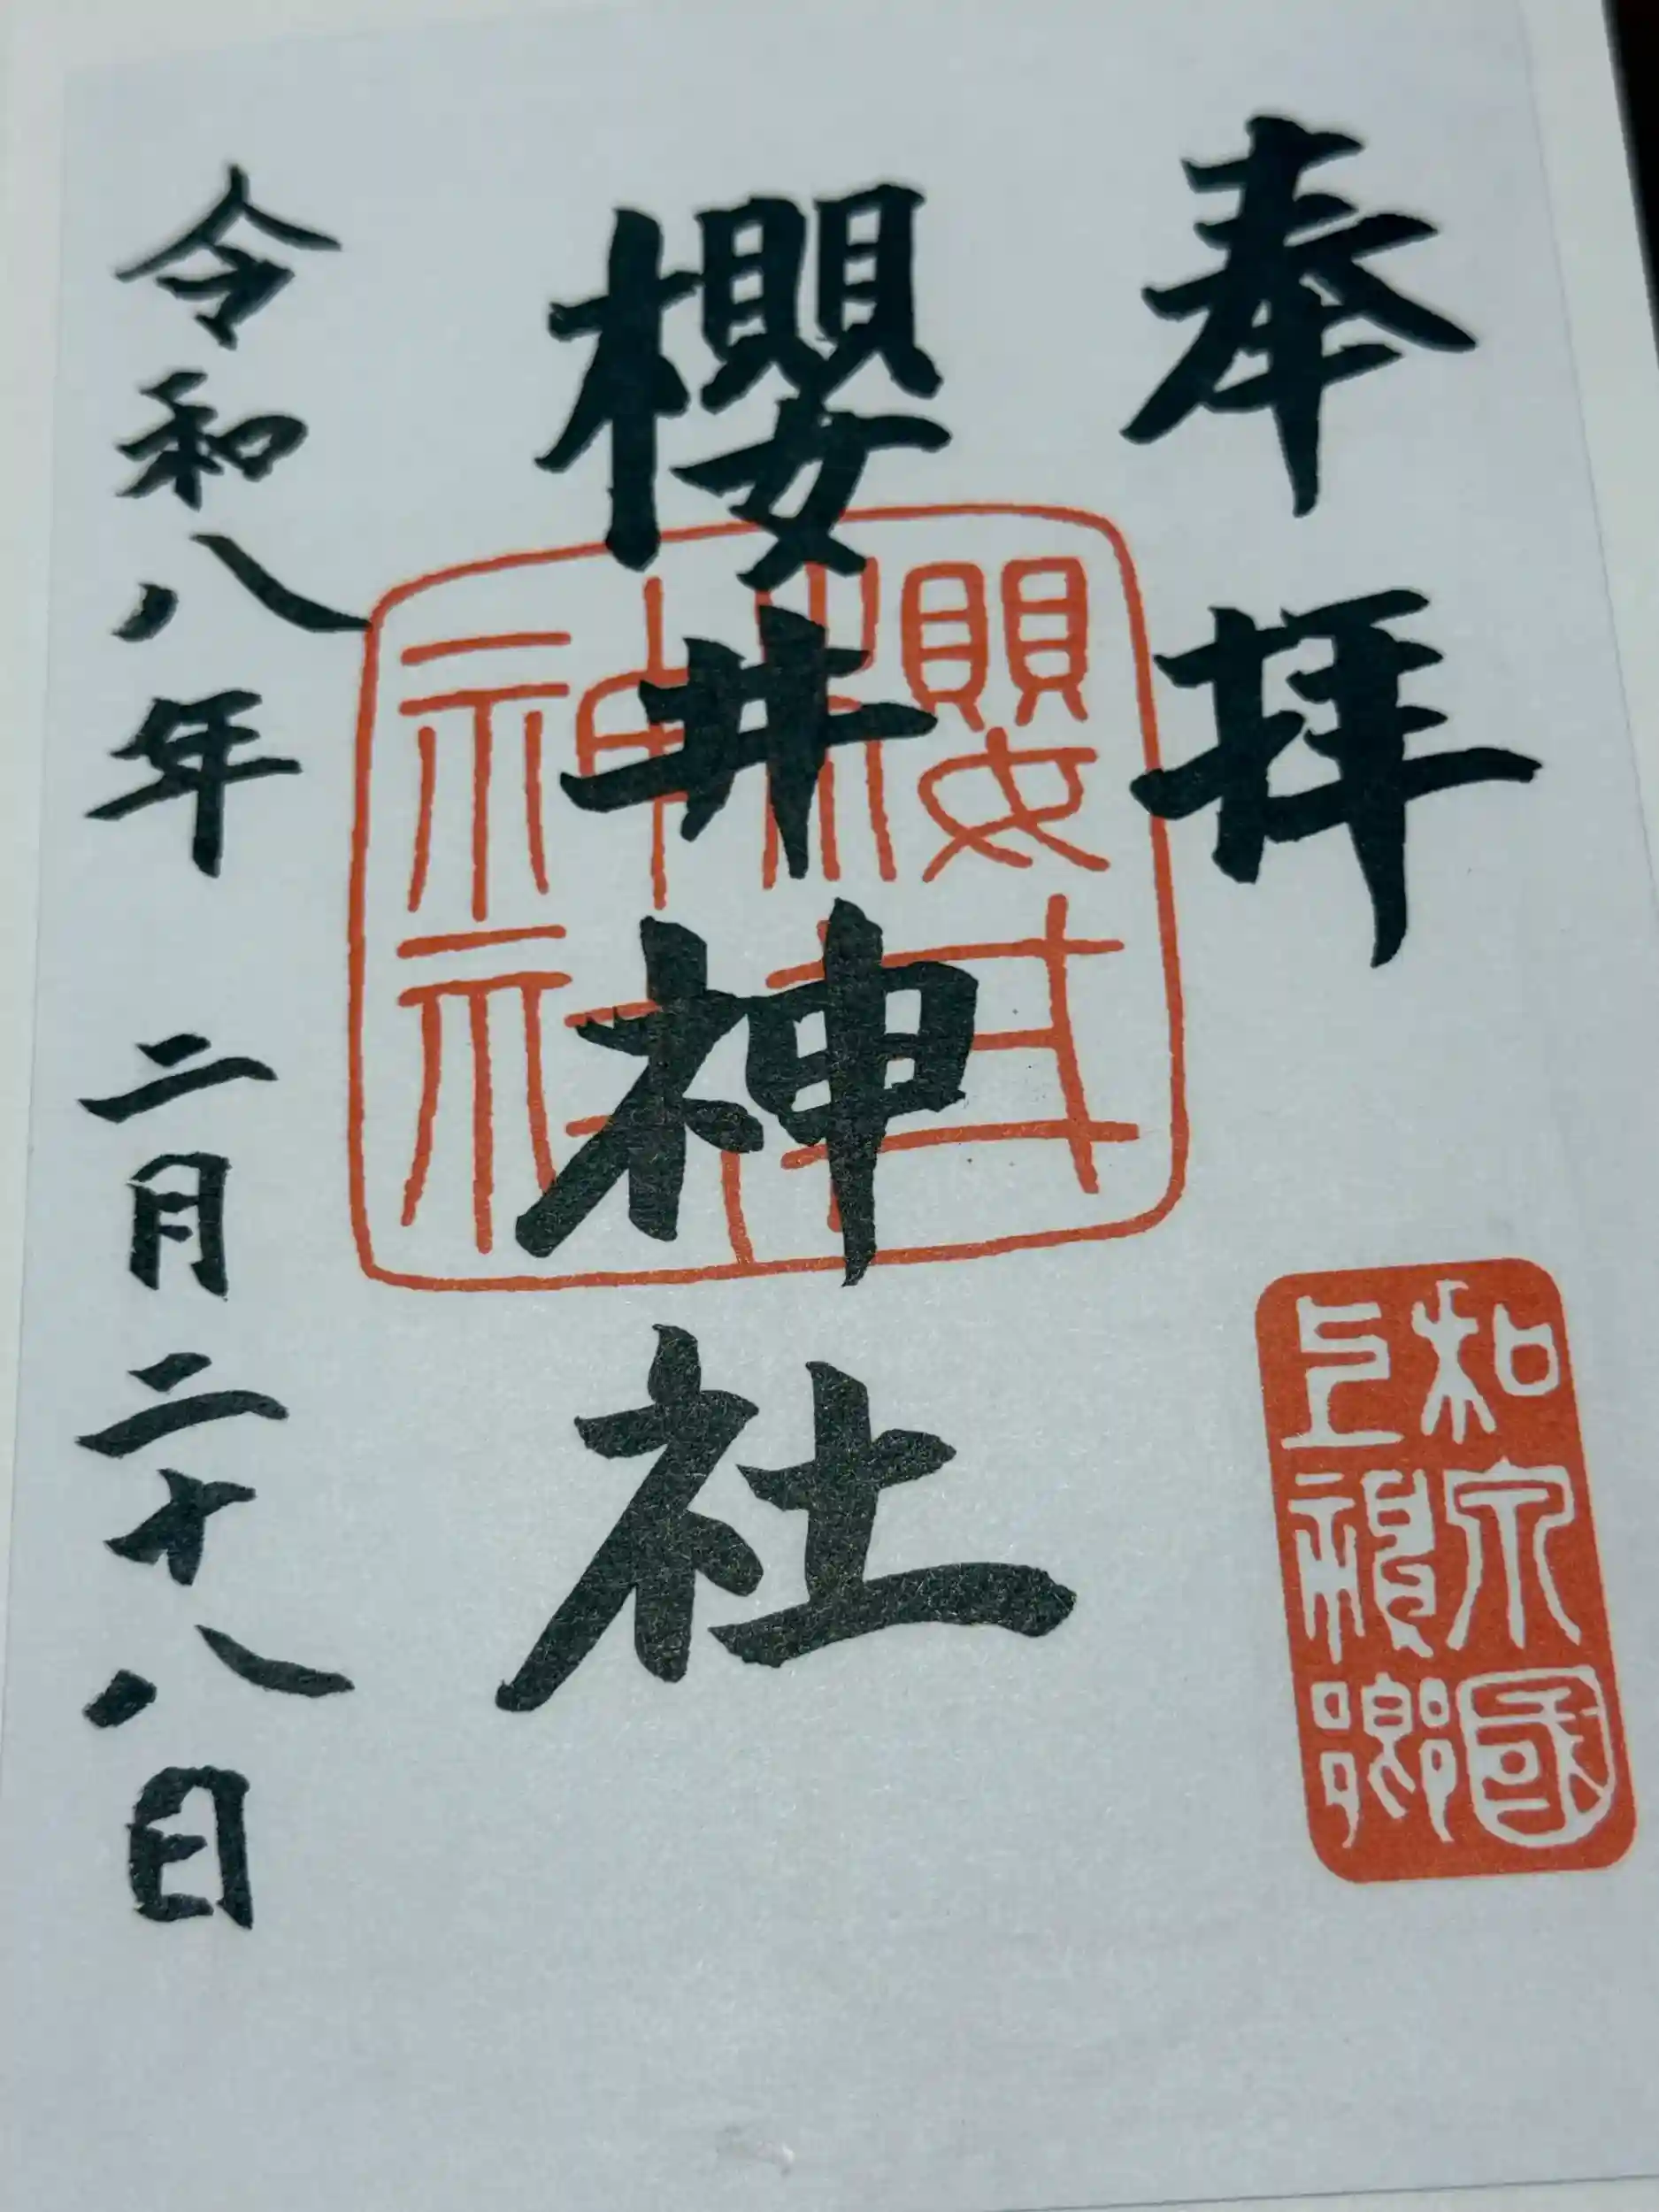 奉拝
和泉國
上神郷
櫻井神社
櫻井
神社
令和八年 二月二十八日